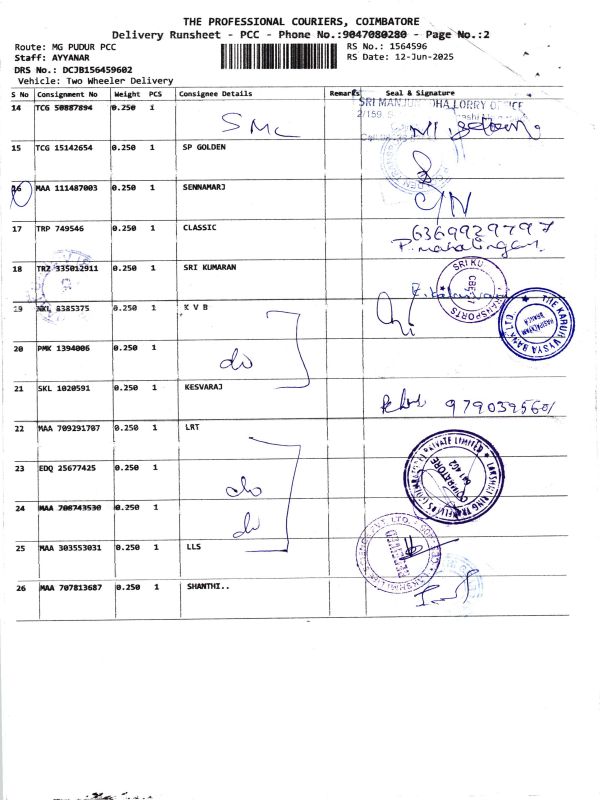 THE PROFESSIONAL COURIERS, COIMBATORE
Delivery Runsheet - PCC - Phone No.:9047080280 - Page No.:2
Route: MG PUDUR PCC
RS No.: 1564596
Staff: AYYANAR
RS Date: 12-Jun-2025
DRS No.: DCJB156459602
Vehicle: Two Wheeler Delivery
S No Consignment No Weight PCS Consignee Details Remarks Seal & Signature
14 TCG 50887894 0.250 1 SMC
SRI MANJUNADHA LORRY OFFICE
2/159
15 TCG 15142654 0.250 1 SP GOLDEN
16 MAA 111487003 0.250 1 SENNAMARJ
17 TRP 749546 0.250 1 CLASSIC 6369929797
18 TRZ 335012911 0.250 1 SRI KUMARAN
SRI KU
TRANSPORTS
CBE
19 NKL 8385375 0.250 1 K V B
THE KARUR VYSYA BANK LTD
20 PMK 1394006 0.250 1 do
21 SKL 1020591 0.250 1 KESVARAJ
22 MAA 709291707 0.250 1 LRT
PRIVATE LIMITED
COIMBATORE
641 402
23 EDQ 25677425 0.250 1 do
24 MAA 708743530 0.250 1 do
25 MAA 303553031 0.250 1 LLS
26 MAA 707813687 0.250 1 SHANTHI..